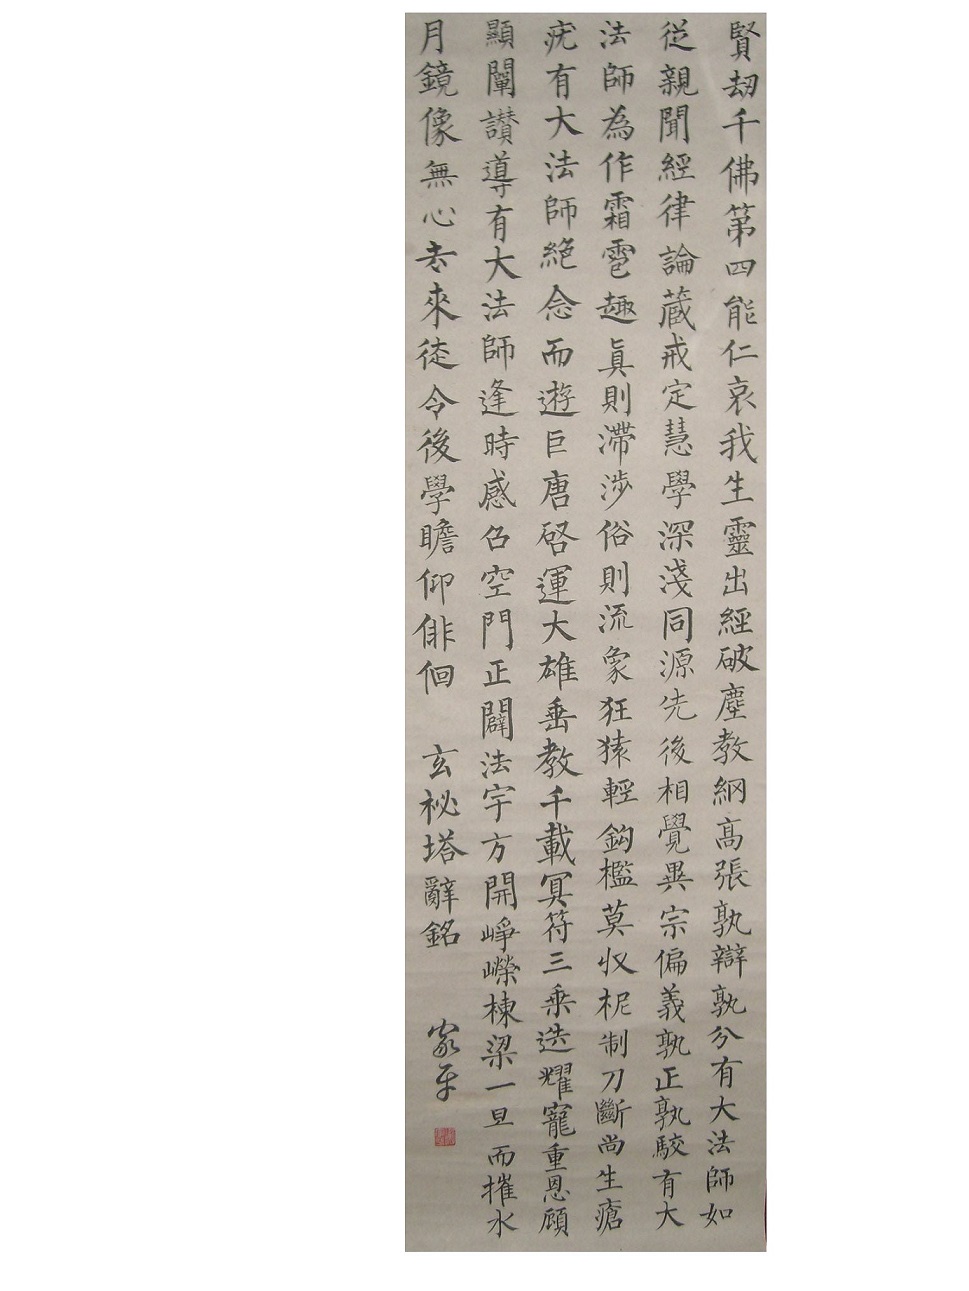 賢劫千佛第四能仁哀我生靈出經破塵教綱高張孰辯孰分有大法師如
從親聞經律論藏戒定慧學深淺同源先後相覺異宗偏義孰正孰駮有大
法師為作霜雹趣真則滯涉俗則流象狂猿輕鈎檻莫收柅制刀斷尚生瘡
疣有大法師絕念而遊巨唐啓運大雄垂教千載冥符三乘迭耀寵重恩顧
顯闡讃導有大法師逢時感召空門正闢法宇方開崢嶸棟梁一旦而摧水
月鏡像無心去來徒令後學瞻仰俳佪 玄祕塔辭銘 家平